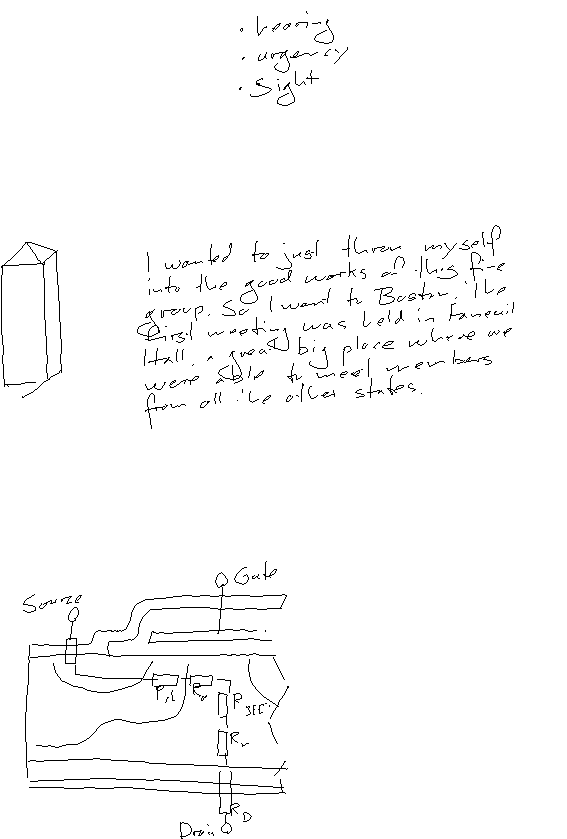 · hearing
· urgency
· Sight
I wanted to just throw myself
into the good works of this fine
group. So I went to Boston. The
first meeting was held in Faneuil
Hall, a great big place where we
were able to meet members
from all the other states.
Gate
Source
R
R
R
Drain